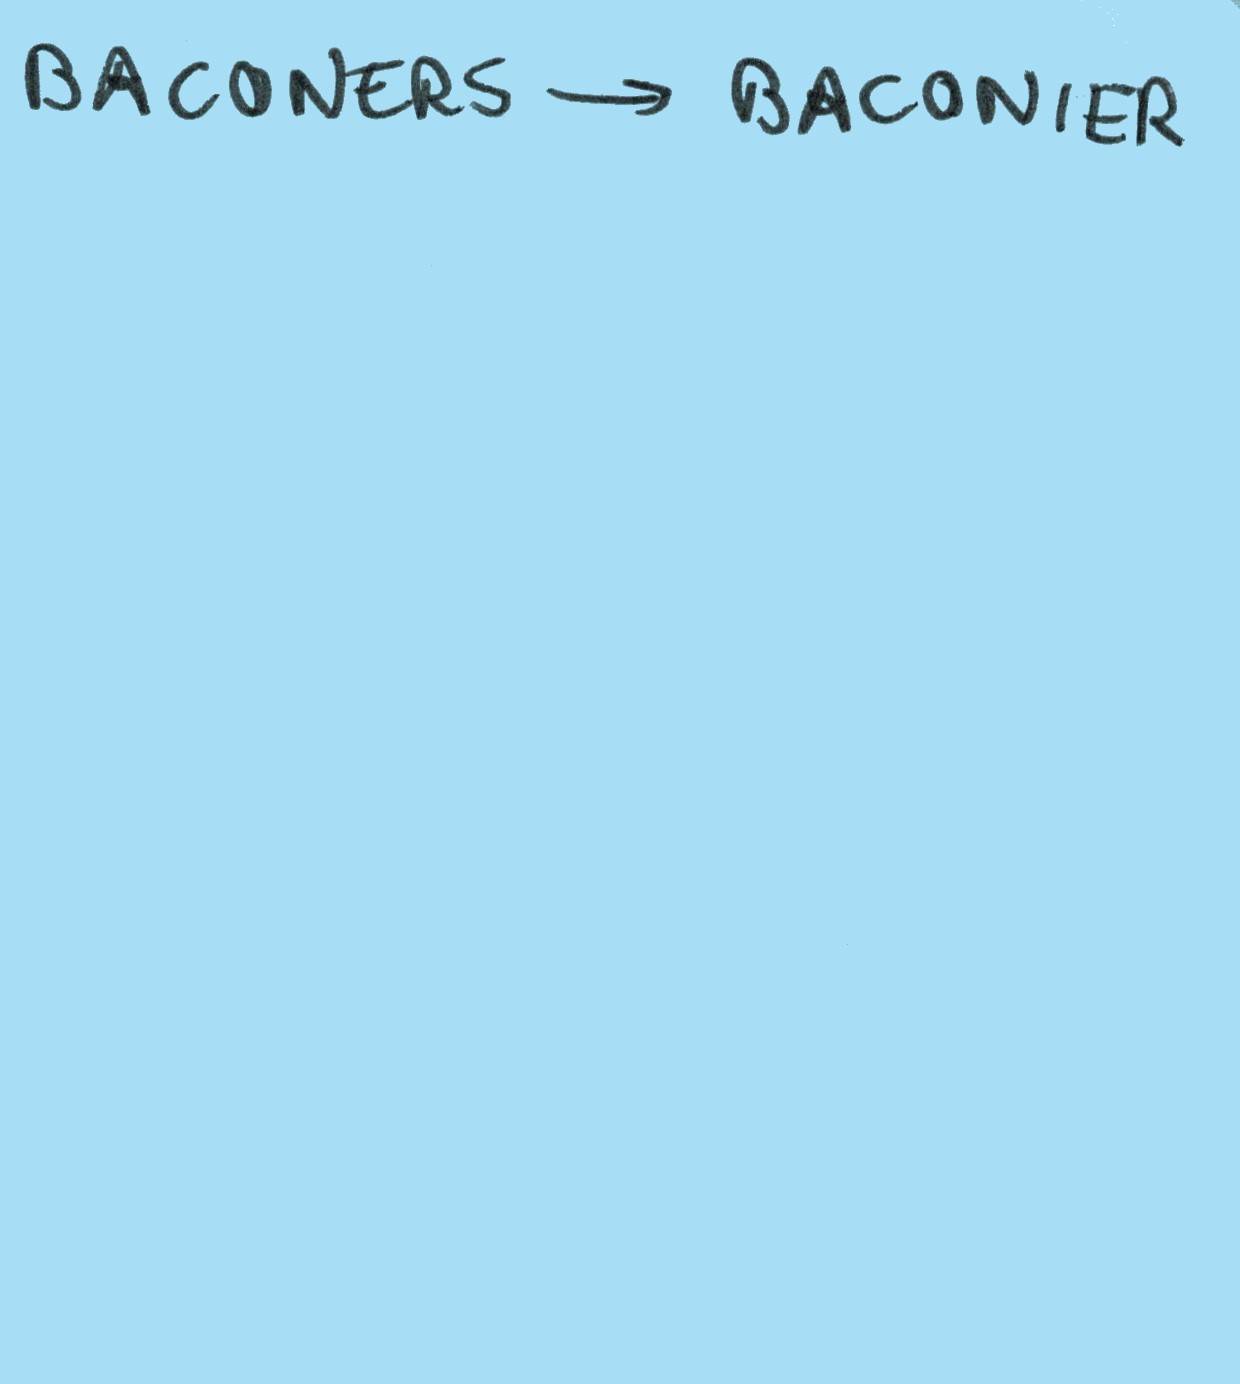 BACONERS → BACONIER